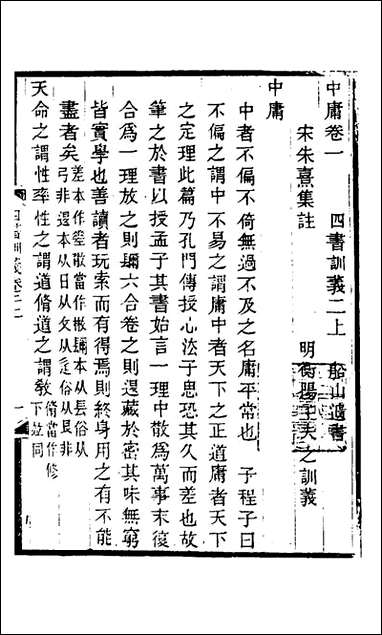 中庸卷一　四書訓義二上　船山遺書
宋朱熹集註　明衡陽王夫之訓義
中庸
中者不偏不倚無過不及之名庸平常也　子程子曰
不偏之謂中不易之謂庸中者天下之正道庸者天下
之定理此篇乃孔門傳授心法子思恐其久而差也故
筆之於書以授孟子其書始言一理中散爲萬事末復
合爲一理放之則彌六合卷之則退藏於密其味無窮
皆實學也善讀者玩索而有得焉則終身用之有不能
盡者矣
天命之謂性率性之謂道脩道之謂敎脩當作修下竝同
四書訓義卷二